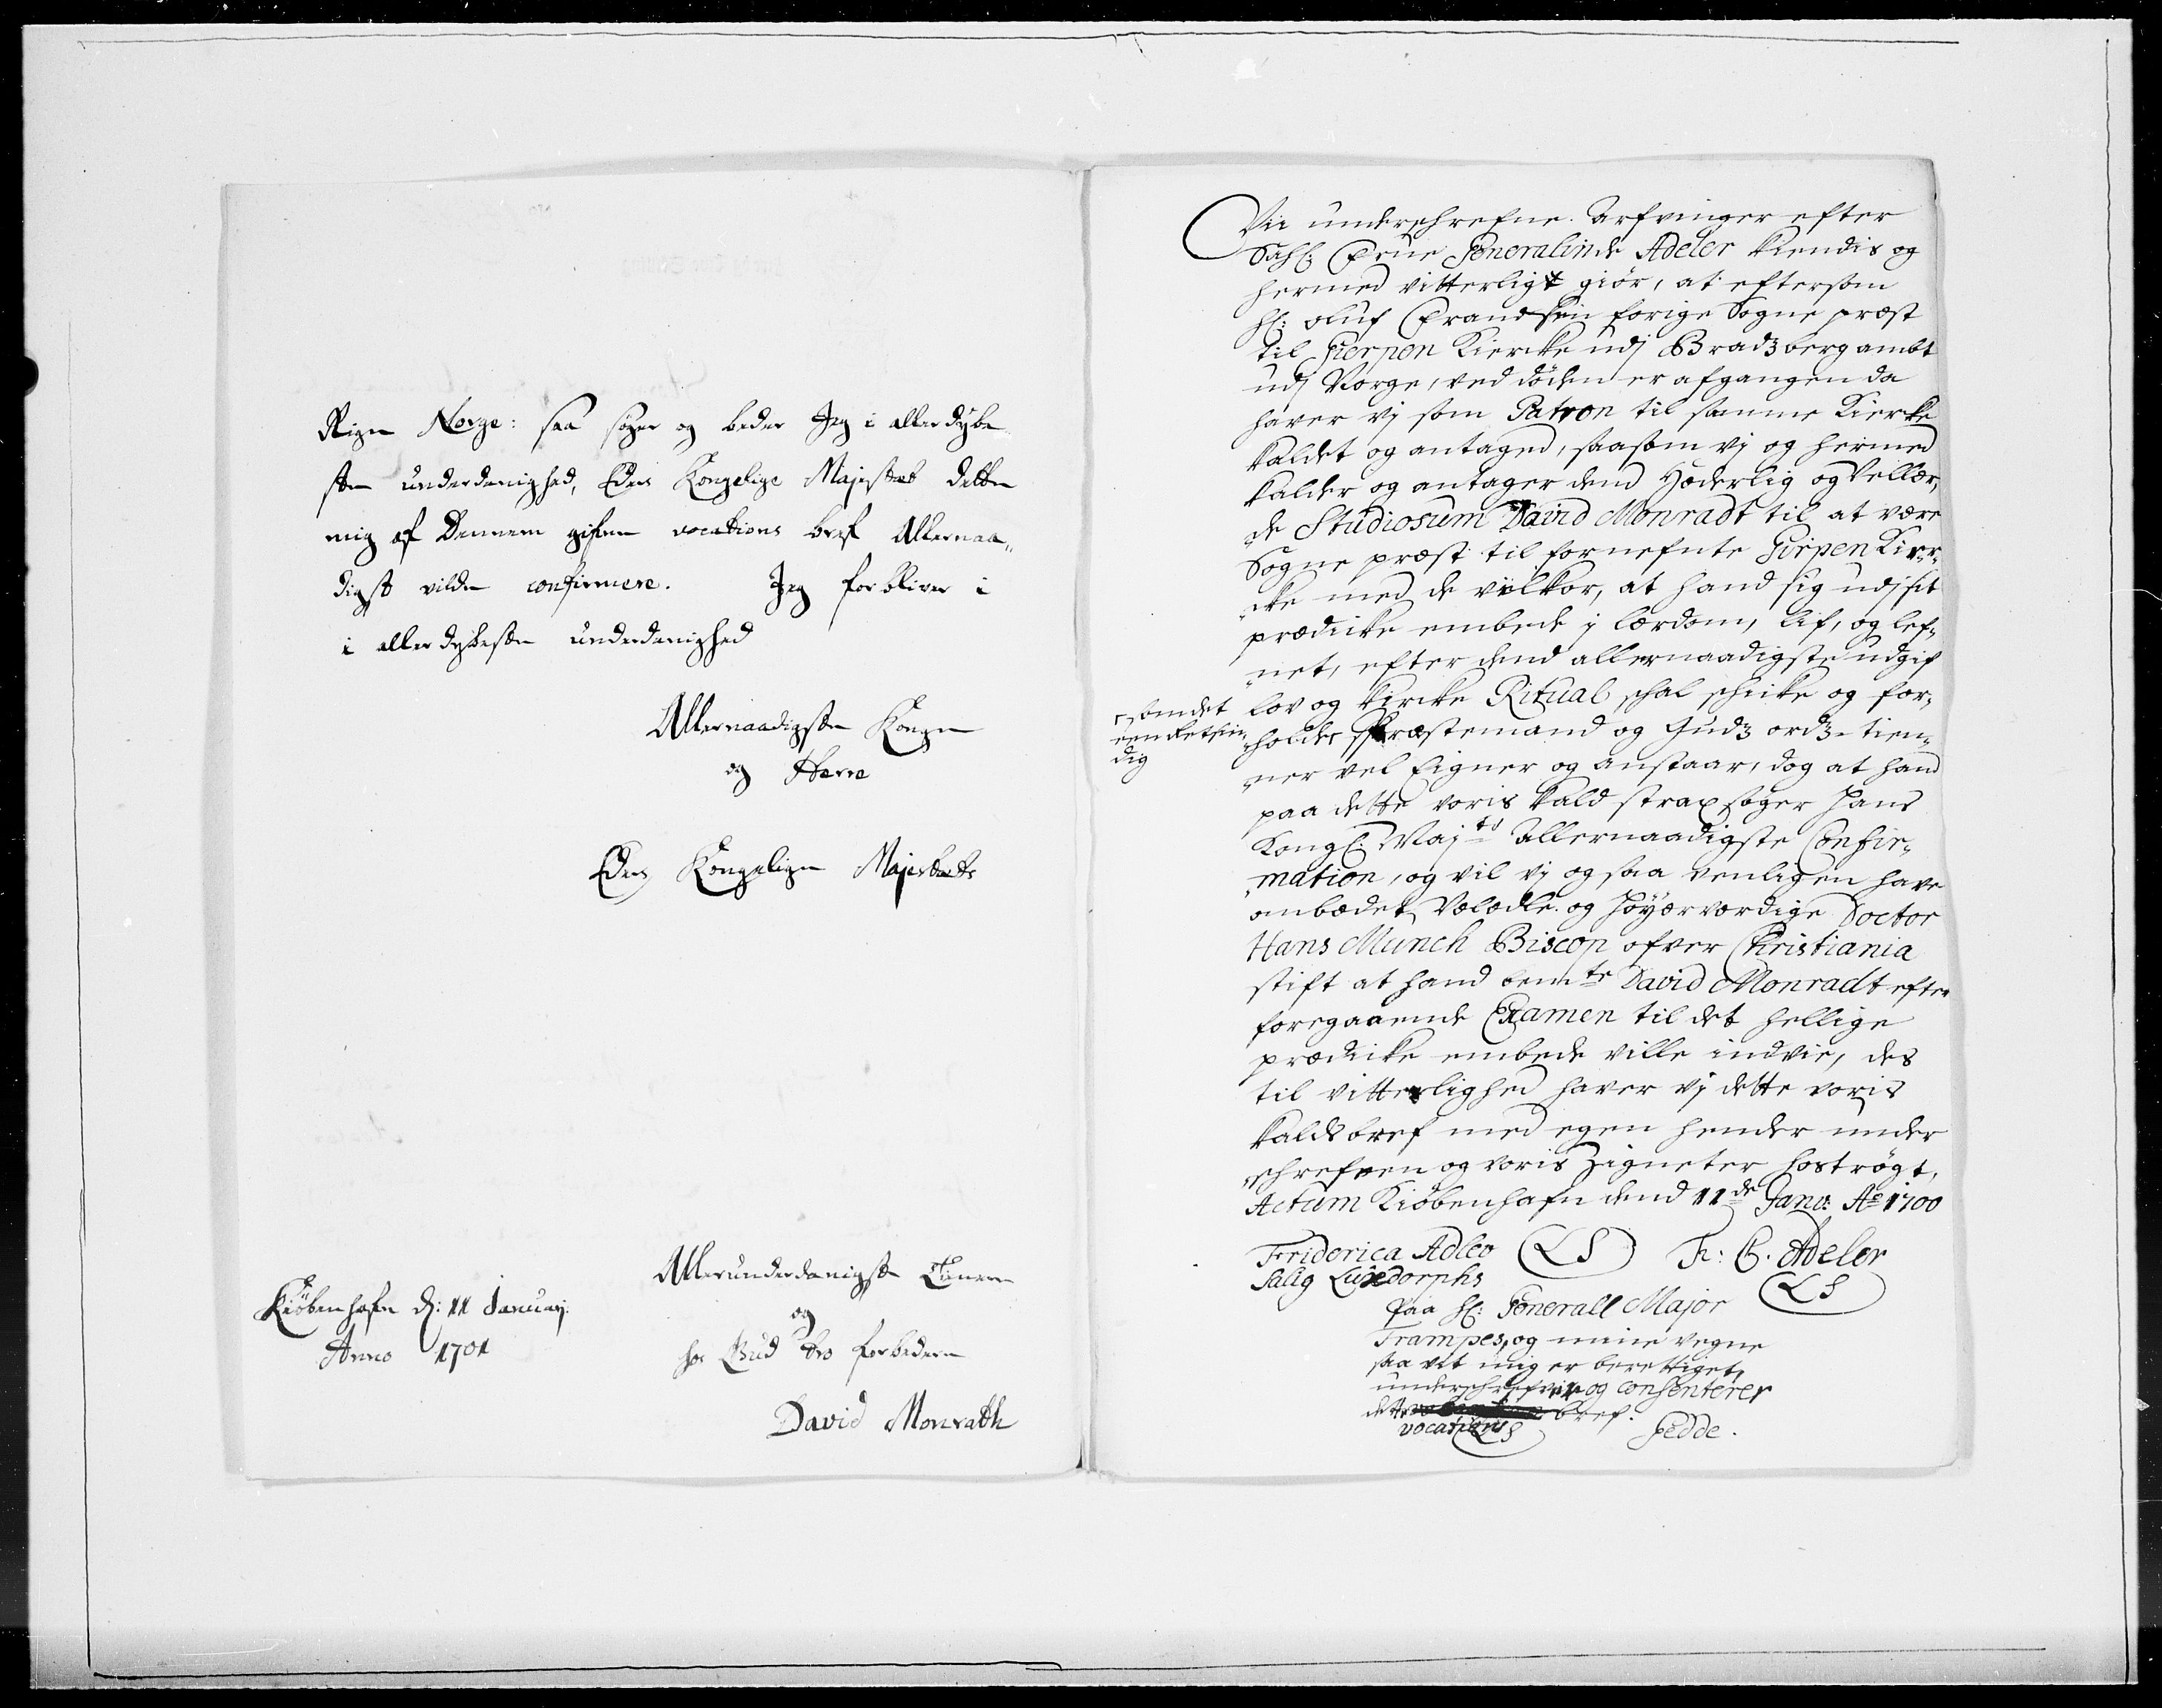 Rige Norge: saa søger og beder Jeg i aller dybe
ste underdanighed, Eders Kongelige Majestæt dette
mig af Dennem gifne vocations bref Allernaa„
digst vilde confirmere. Jeg forbliver i
i aller dybeste underdanighed
Allernaadigste Konge
og Herre
Eders Kongelige Majestæts
Allerunderdanigste Tienere
og
hos Gud tro forbedere
David Monrath
Kiøbenhafn d: 11 Januarij
Anno 1701
Vii underschrefne Arfvinger efter
Sahl: Frue Generalinde Adeler kiendis og
hermed vitterligt giør, at eftersom
Hl: Oluf Frandsen forige Sogne præst
til Gierpen Kiercke udj Bradzberg ambt
udj Norge, ved døden er afgangen da
haver vj som Patron til samme Kiercke
kaldet og antaged, saasom vj og hermed
kalder og antager dend Hæderlig og Vellær„
de Studiosum David Monradt til at være
Sogne præst til fornefnte Girpen Kier„
„cke med de vilkor, at hand sig udj sit
prædicke embede j lærdom, lif, og lef„
„net, efter dend allernaadigste udgif
lov og Kircke Ritual schal schicke og for„
„holde, som det
een retsin„
dig
Præstemand og Gudz ordz tien„
„ner vel Eigner og anstaar, dog at hand
paa dette voris kald strax søger Hans
Kongl: Maj:ts Allernaadigste Confir„
„mation, og vil vj og saa venligen have
anbædet, Velædle og Høyærværdige Doctor
Hans Munch Biscop ofver Christiania
stift at hand bem:te David Monradt efter
foregaaende Examen til det hellige
prædicke embede ville indvie, des
til vitterlighed haver vj dette voris
kaldsbref med egen hender under
„schrefven og voris Zigneter hostrøgt,
Actum Kiøbenhafn dend 11de Janv: Ao 1700
Friderica Adler (LS) Fr: C. Adeler
Salig Luxdorphs (LS)
Paa Hl: Generall Major
Trampes, og mine vegne
saa vit mig er berettiget,
underschrefver og consenterer
dette vocations bref.
(LS) Gedde.